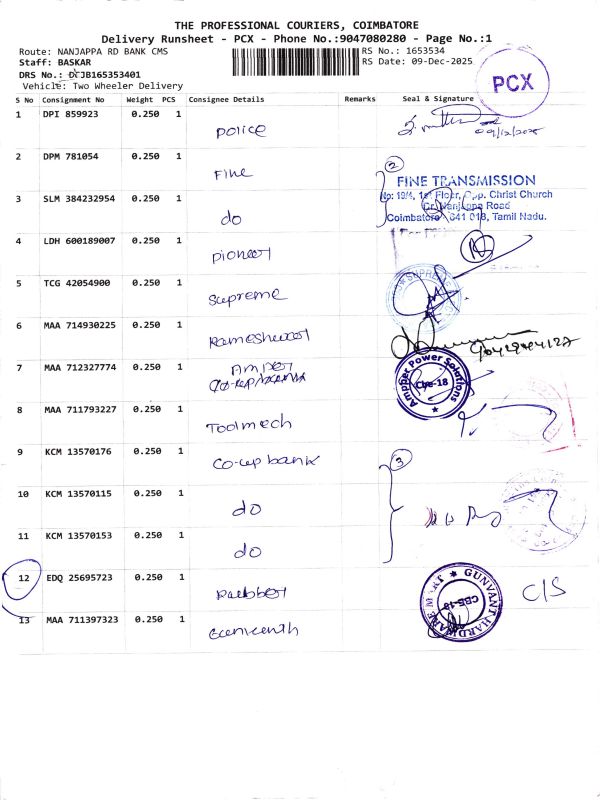 THE PROFESSIONAL COURIERS, COIMBATORE
Delivery Runsheet - PCX - Phone No.:9047080280 - Page No.:1
Route: NANJAPPA RD BANK CMS
RS No.: 1653534
Staff: BASKAR
RS Date: 09-Dec-2025
DRS No.: DCJB165353401
Vehicle: Two Wheeler Delivery
PCX
S No Consignment No Weight PCS Consignee Details Remarks Seal & Signature
1 DPI 859923 0.250 1 police 09/12/2025
2 DPM 781054 0.250 1 Fine 2
FINE TRANSMISSION
No: 19/4, 1st Floor, Opp. Christ Church
Nanjappa Road
Coimbatore - 641 018, Tamil Nadu.
3 SLM 384232954 0.250 1 do
4 LDH 600189007 0.250 1 pioneer
5 TCG 42054900 0.250 1 Supreme
6 MAA 714930225 0.250 1 Rameshwar
7 MAA 712327774 0.250 1 Amper
Ampper Power Solutions
Cbe-18
8 MAA 711793227 0.250 1 Toolmech
9 KCM 13570176 0.250 1 Co-up bank 3
10 KCM 13570115 0.250 1 do
11 KCM 13570153 0.250 1 do
12 EDQ 25695723 0.250 1 C/S
GUNVANT HARDWARE MART
CBE-18
13 MAA 711397323 0.250 1